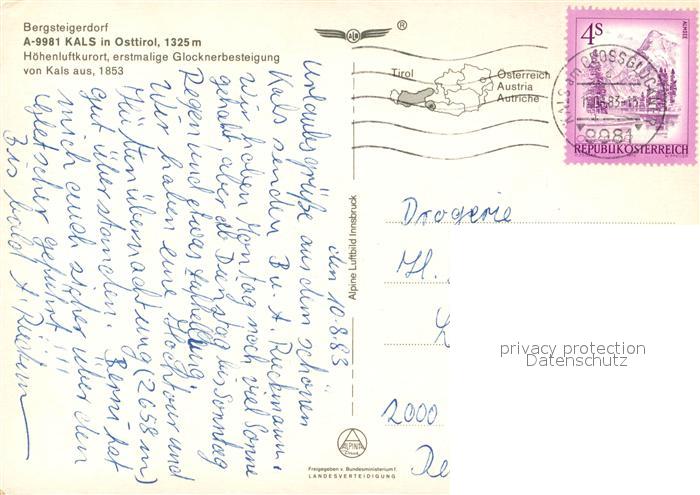 Bergsteigerdorf
A-9981 KALS in Osttirol, 1325 m
Höhenluftkurort, erstmalige Glocknerbesteigung
von Kals aus, 1853
ALB
®
Tirol
Österreich
Austria
Autriche
4S
ALMSEE
KALS AM GROSSGLOCKNER
9981
REPUBLIK ÖSTERREICH
den 10.8.83
Urlaubsgrüße aus dem schönen
Kals senden B u. A. Ruckmann.
Wir haben Montag noch viel Sonne
gehabt, aber ab Dienstag bis Sonntag
Regen und etwas Aufhellung.
Wir haben eine Hochtour und
Hüttenübernachtung (2658 m)
gut überstanden. Berni hat
mich auch sicher über den
Gletscher geführt!!!
Bis bald A.
Alpine Luftbild Innsbruck
Drogerie
H.
2000
privacy protection
Datenschutz
ALPINA
Druck
Freigegeben v. Bundesministerium f.
LANDESVERTEIDIGUNG